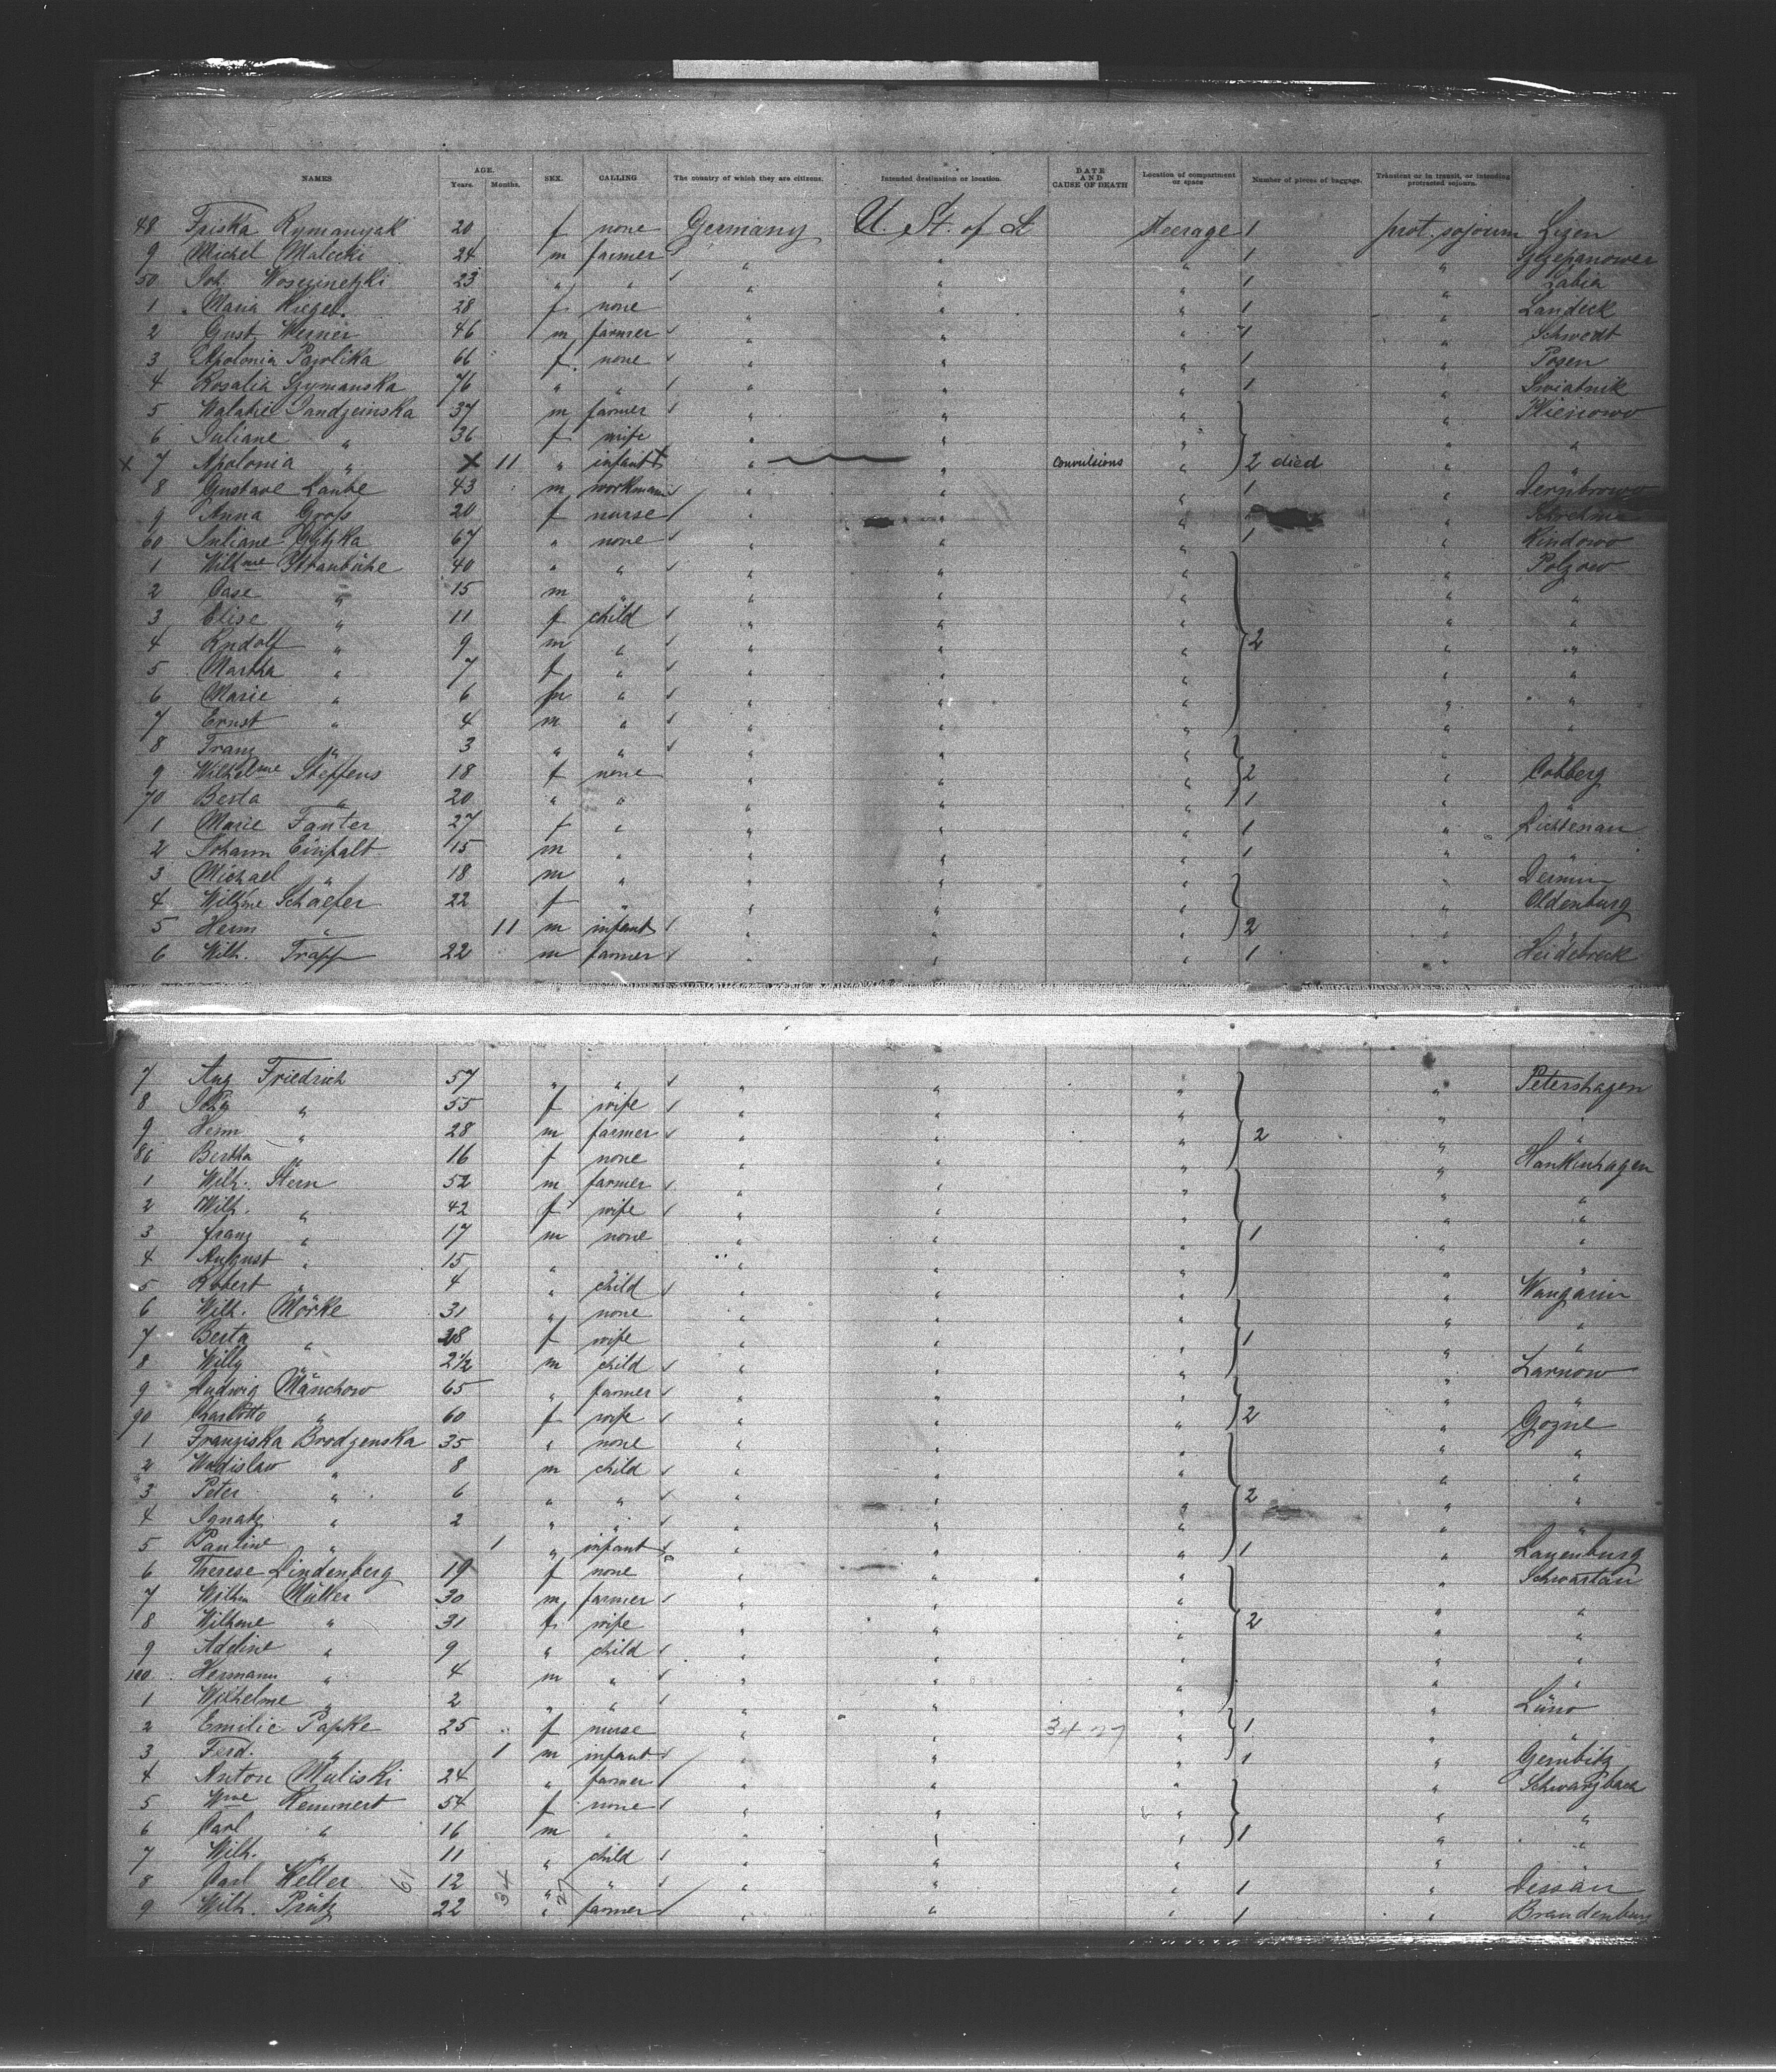 NAMES AGE. Years. Months. SEX. CALLING The country of which they are citizens. Intended destination or location. DATE AND CAUSE OF DEATH Location of compartment or space Number of pieces of baggage. Transient or in transit, or intending protracted sojourn.
48 Friska Rymanyak 20 f none Germany U. St. of A Steerage 1 prot. sojourn Lezen
9 Michel Malecki 24 m farmer " " " 1 " Szczepanower
50 Joh. 23 " " " " " 1 " Labia
1 Maria Kiegel 28 f none " " " 1 " Landeck
2 Gust Werner 46 m farmer " " " 1 " Schwedt
3 Apolonia Pawlika 66 f. none " " " 1 " Posen
4 Rosalia Szymanska 76 " " " " " 1 " Swiatnik
5 Walatie Dandzeinska 37 m farmer " " " "
6 Juliane " 36 f wife " " " " "
x 7 Apolonia " x 11 " infant x " " Convulsions " 2 died " "
8 Gustave Laube 43 m workman " " " 1 "
9 Anna Gross 20 f nurse " " " "
60 Juliane 67 " none " " " 1 " Kindowo
1 Wilhme 40 " " " " " " Polzow
2 Case " 15 m " " " " " "
3 Elise " 11 f child " " " " "
4 Rudolf " 9 m " " " " 2 " "
5 Martha " 7 f " " " " " "
6 Marie " 6 " " " " " "
7 Ernst " 4 m " " " " " "
8 Franz " 3 " " " " " "
9 Wilhelme Steffens 18 f none " " " 2 " Colberg
70 Berta " 20 " " " " " 1 "
1 Marie Fanter 27 f " " " " 1 " Lichtenau
2 Johann Einfalt 15 m " " " " 1 " "
3 Michael " 18 m " " " " " Demin
4 Wilhme Schäefer 22 f " " " " " Oldenburg
5 Herm " 11 m infant " " " 2 " "
6 Wilh. Trapp 22 m farmer " " " 1 " Heidebreck
7 Aug Friedrich 57 " " " " " " Petershagen
8 " 55 f wife " " " " "
9 Herm " 28 m farmer " " " 2 " "
80 Bertha " 16 f none " " " " Hankenhagen
1 Wilh. Stern 52 m farmer " " " " "
2 Wilh. " 42 f wife " " " " "
3 Franz " 17 m none " " " 1 " "
4 August " 15 " " " " " "
5 Robert " 4 " child " " " " Wangarin
6 Wilh. Mörke 31 " none " " " " "
7 Berta " 28 f wife " " " 1 " "
8 Willy " 2½ m child " " " " Zarnow
9 Ludwig Mänchow 65 " farmer " " " " "
90 Charlotte " 60 f wife " " " 2 " Gozne
1 Franziska Brodzenska 35 " none " " " " "
2 Wadislaw " 8 m child " " " " "
3 Peter " 6 " " " " " 2 " "
4 Ignatz " 2 " " " " " " "
5 Pauline " 1 " infant " " " 1 " Lauenburg
6 Therese Lindenberg 19 f none " " " " Schwartau
7 Wilhm Müller 30 m farmer " " " " "
8 Wilhme " 31 f wife " " " 2 " "
9 Adeline " 9 " child " " " " "
100 Hermann " 4 m " " " " " "
1 Wilhelme " 2 " " " " " "
2 Emilie Papke 25 f nurse " " 34-27 " 1 " "
3 Ferd. " 1 m infant " " " 1 " Gembitz
4 Anton Maliski 24 " farmer " " " " Schwarzbach
5 Wme Kemmert 54 f none " " " " "
6 Carl " 16 m " " " " 1 " "
7 Wilh. " 11 " child " " " "
8 Carl Weller 61 12 34 27 " " " " " 1 " Dessau
9 Wilh. Prütz 22 " farmer " " " 1 " Brandenburg